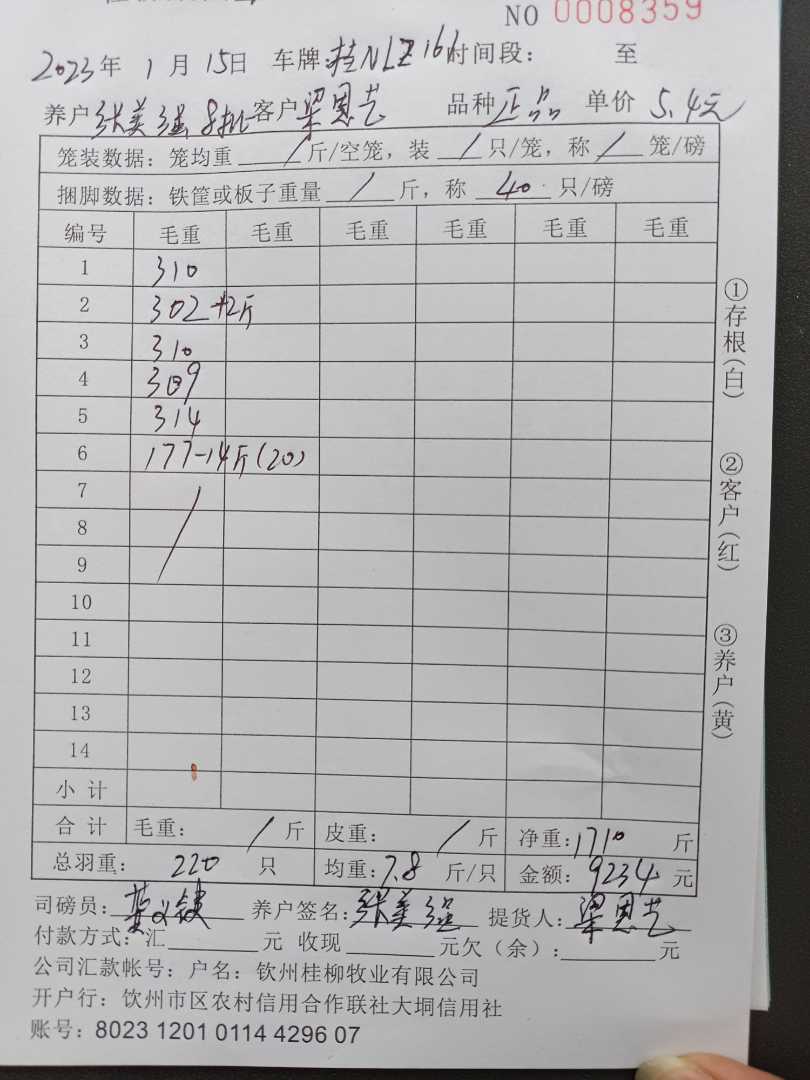 NO 0008359
2023年 1月 15日 车牌:桂NLZ161 时间段: 至
养户 张美强 8批 客户 梁恩艺 品种 正品 单价 5.4元
笼装数据: 笼均重 / 斤/空笼, 装 / 只/笼, 称 / 笼/磅
捆脚数据: 铁筐或板子重量 / 斤, 称 40 只/磅
编号 毛重 毛重 毛重 毛重 毛重 毛重
1 310
2 302+2斤
3 310
4 309
5 314
6 177-14斤(20)
7
8
9
10
11
12
13
14
小计
合计 毛重: / 斤 皮重: / 斤 净重:1710 斤
总羽重: 220 只 均重:7.8 斤/只 金额: 9234 元
司磅员: 养户签名:张美强 提货人:梁恩艺
付款方式: 汇 元 收现 元欠(余): 元
公司汇款帐号: 户名: 钦州桂柳牧业有限公司
开户行: 饮州市区农村信用合作联社大垌信用社
账号: 8023 1201 0114 4296 07
①存根(白)
②客户(红)
③养户(黄)